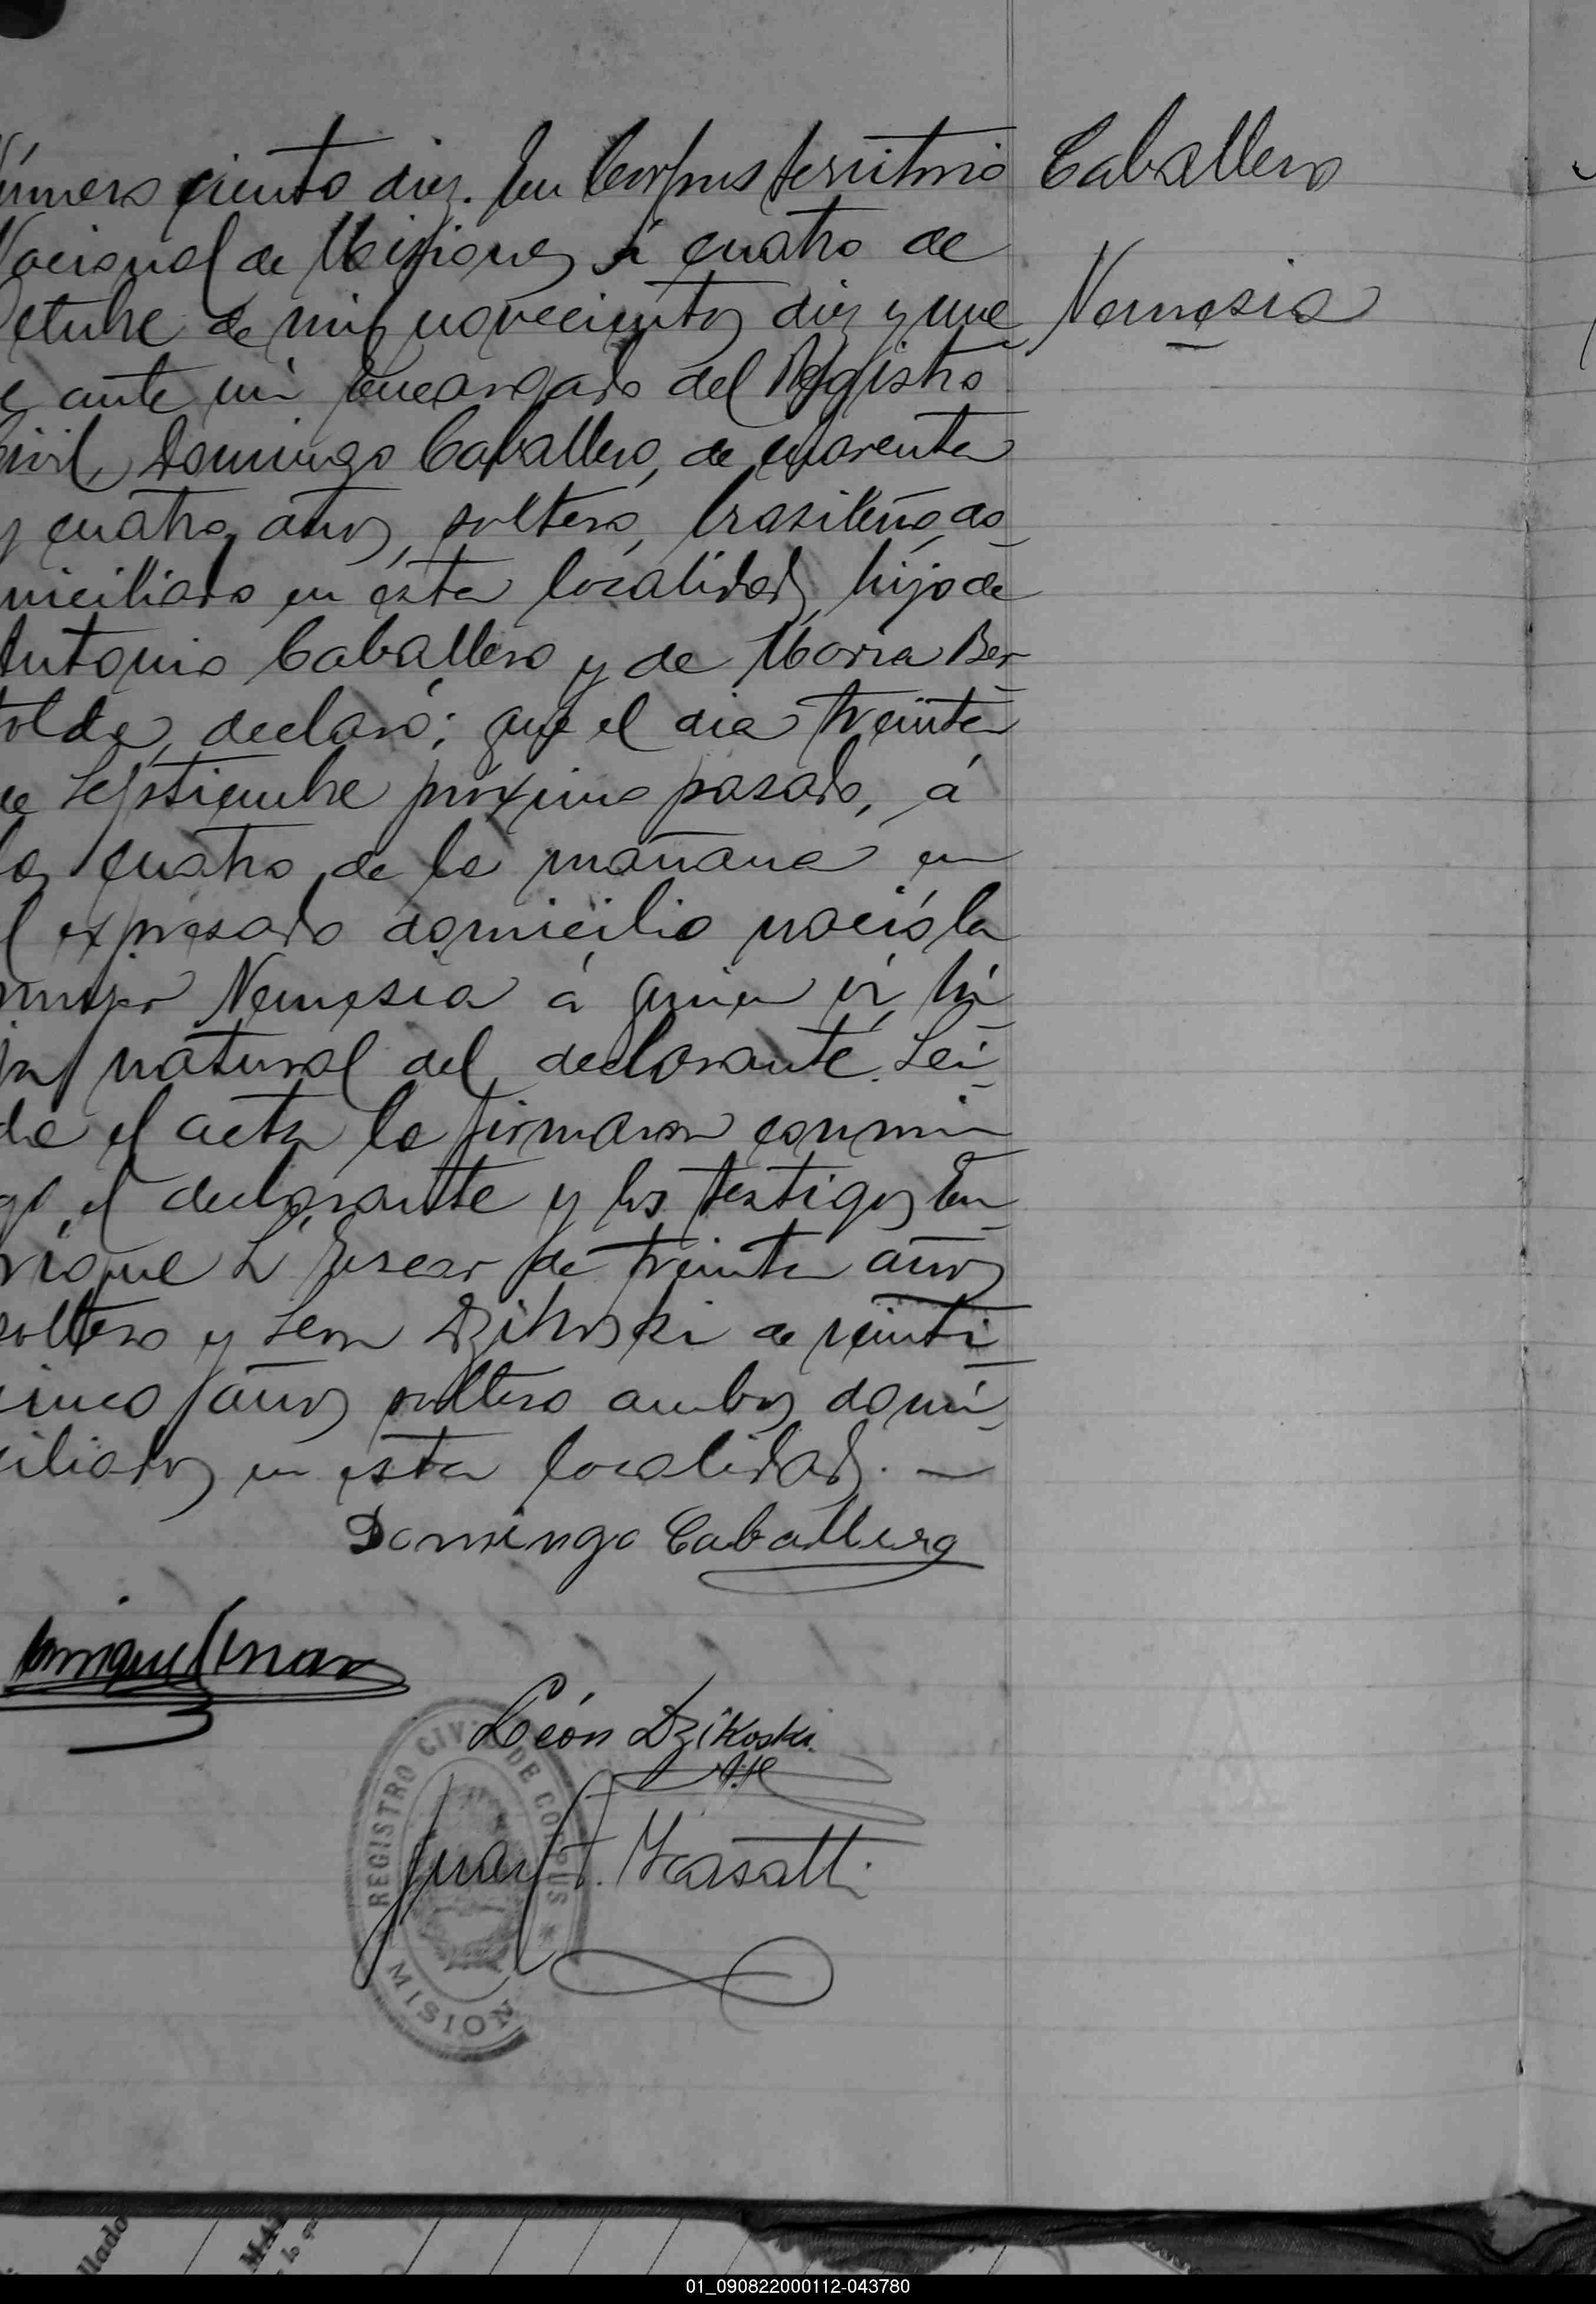 úmero ciento diez. En Corpus territorio
Nacional de Misiones á cuatro de
Octubre de mil novecientos diez y nue
e ante mi Encargado del Registro
Civil, Domingo Caballero, de cuarenta
y cuatro años, soltero, brasileño, do
miciliado en ésta localidad, hijo de
Antonio Caballero y de Maria Ber
tolda, declaró; que el dia treinta
de Septiembre próximo pasado, á
las cuatro de la mañana en
el expresado domicilio nació la
mujer Nemesia á quien vi, hi
ja natural del declarante. Lei
da el acta la firmaron conmi
go, el declarante y los testigos En
rique de treinta años
soltero y Leon Dzikoski de veinti
cinco años soltero ambos domi
ciliados en esta localidad. —
Caballero
Nemesia
Domingo Caballero
Enrique
León Dzikoski
Juan
REGISTRO CIVIL DE CORPUS
* MISION
llado
01_090822000112-043780